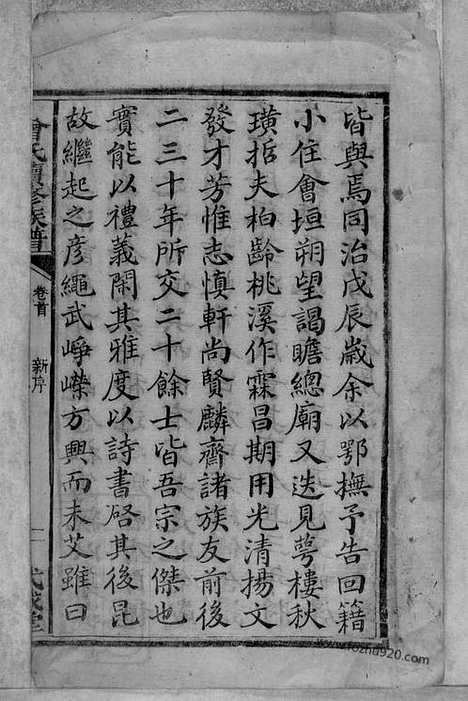 皆與焉同治戊辰歲余以鄂撫予告回籍
小住會垣朔望謁瞻總廟又迭見萼樓秋
璜哲夫柏齡桃溪作霖昌期用光清揚文
發才芳惟志慎軒尚賢麟齊諸族友前後
二三十年所交二十餘士皆吾宗之傑也
實能以禮義閑其雅度以詩書啓其後昆
故繼起之彥繩武崢嶸方興而未艾雖曰
曾氏續修族譜
卷首
新序
一
武城堂
www.fozhu920.com